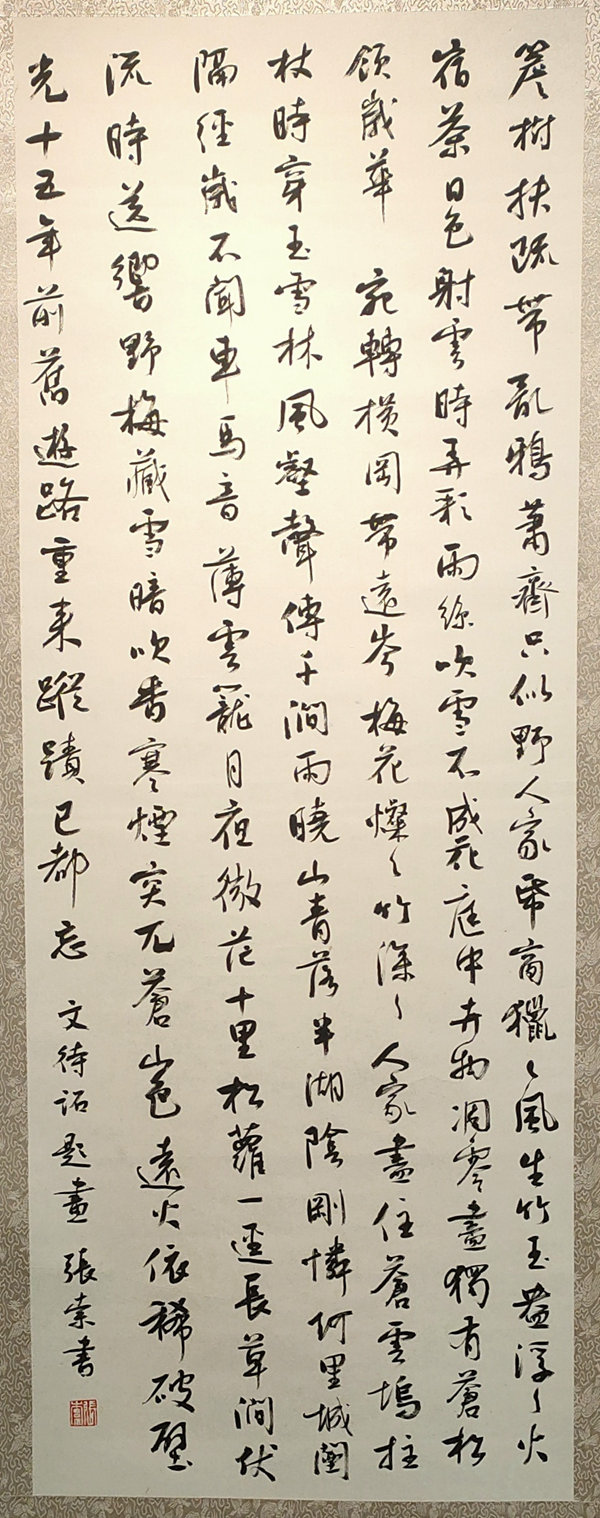 簷樹扶疏帶亂鴉蕭齋只似野人家帋窗獵〻風生竹玉盎浮〻火
宿茶日色射雲時弄彩雨絲吹雪不成花庭中卉物凋零盡獨有蒼松
領歲華 宛轉横岡帶遠岑梅花燦〻竹深〻人家盡住蒼雲塢拄
杖時穿玉雪林風壑聲傳千澗雨曉山青落半湖陰剛憐何里城闉
隔經歲不聞車馬音薄雲籠月夜微茫十里松蘿一逕長草澗伏
流時送響野梅藏雪暗吹香寒煙突兀蒼山色遠火依稀破壁
光十五年前舊遊路重來蹤蹟已都忘 文待詔題畫 張索書
張索